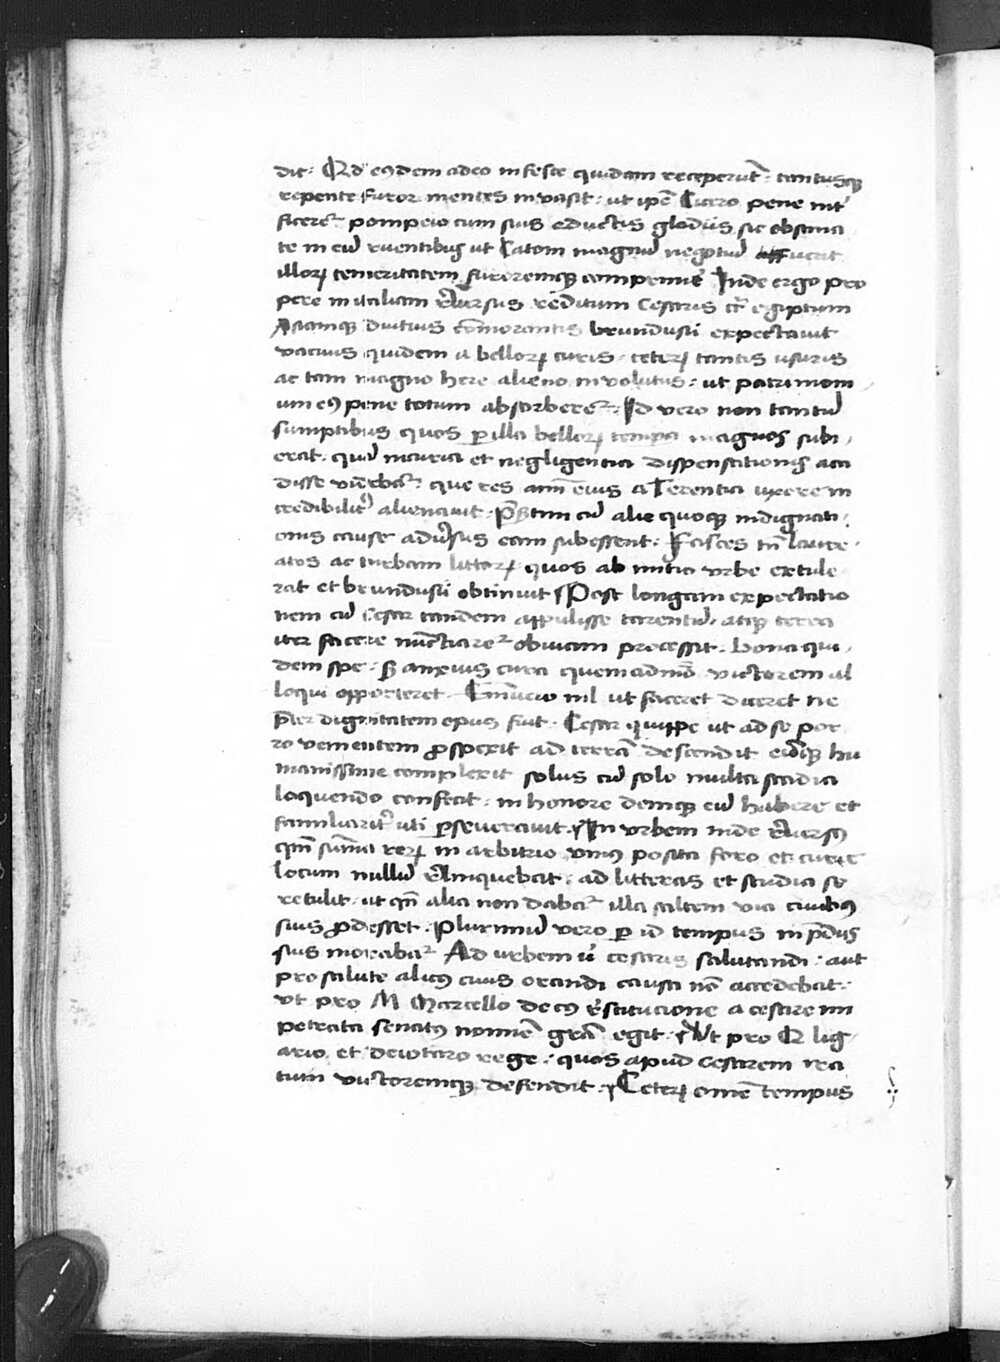 dit· Qd' eiusdem adeo infeste quidam receperūt· tantusq
repente furor mentes invasit· ut ipē Cicero pene int
ficeret pompeio cum suis eductis gladiis sic obstina
te in eū ruentibus ut Catoni magnū negotiū fuerit
illoꝝ temeritatem furoremq comprimē Inde ergo pro
pere in italiam rūersus reditum Cesaris cr̄ egiptum
Asiamq diutius cōmorantis brundusii expectavit
vacuus quidem a belloꝝ curis· ceteꝝ tantis usuris
ac tam magno here alieno involutus· ut patrimoni
um eꝯ pene totum absorberet· Id vero non tantū
sumptibus quos ꝑ illa belloꝝ tempa magnos subi
erat· quā incuria et negligentia dispensationis acci
disse vrēbat· que res aīm eius a Terentia uxore in
credibilitr alienavit· P̄stim cū alie quoq indignati
onis cause adūsus eam subessent· Fasces tn̄ laure
atos ac turbam littoꝝ quos ab initio urbe extule
rat et brundusii obtinuit Post longam expectatio
nem cū Cesar tandem appulisse tarentū· atq terra
iter facere nūctiaret obviam processit· bona qui
dem spe· sꝫ anxius cura quemadmō victorem al
loqui opporteret Ceterum nil ut faceret diceret ne
p̄ter dignitatem opus fuit· Cesar quippe ut ad se por
ro venientem ꝓspexit ad terrā descendit eūq hu
manissime complexit solus cū solo multa stadia
loquendo confecit· in honore demq eū habere et
familiaritr uti ꝑseveravit· In urbem inde rūersꝯ
qm̄ sum̄a reꝝ in arbitrio unius posita foro et curie
locum nullū relinquebat· ad litteras et studia se
retulit· ut qn̄ alia non dabat illa saltem via civibꝯ
suis ꝓdesset· Plurimū vero ꝑ id tempus in p̄diis
suis morabat Ad urbem ū cesaris salutandi· aut
pro salute alicꝯ civis orandi causa nō accedebat·
ut pro M Marcello de cꝯ restitucione a cesare im
petrata senatꝯ nomīe grās egit· Ut pro Q lig
ario et deiotaro rege· quos apud cesarem ira
tum victoremq defendit· Ceteꝝ omne tempus